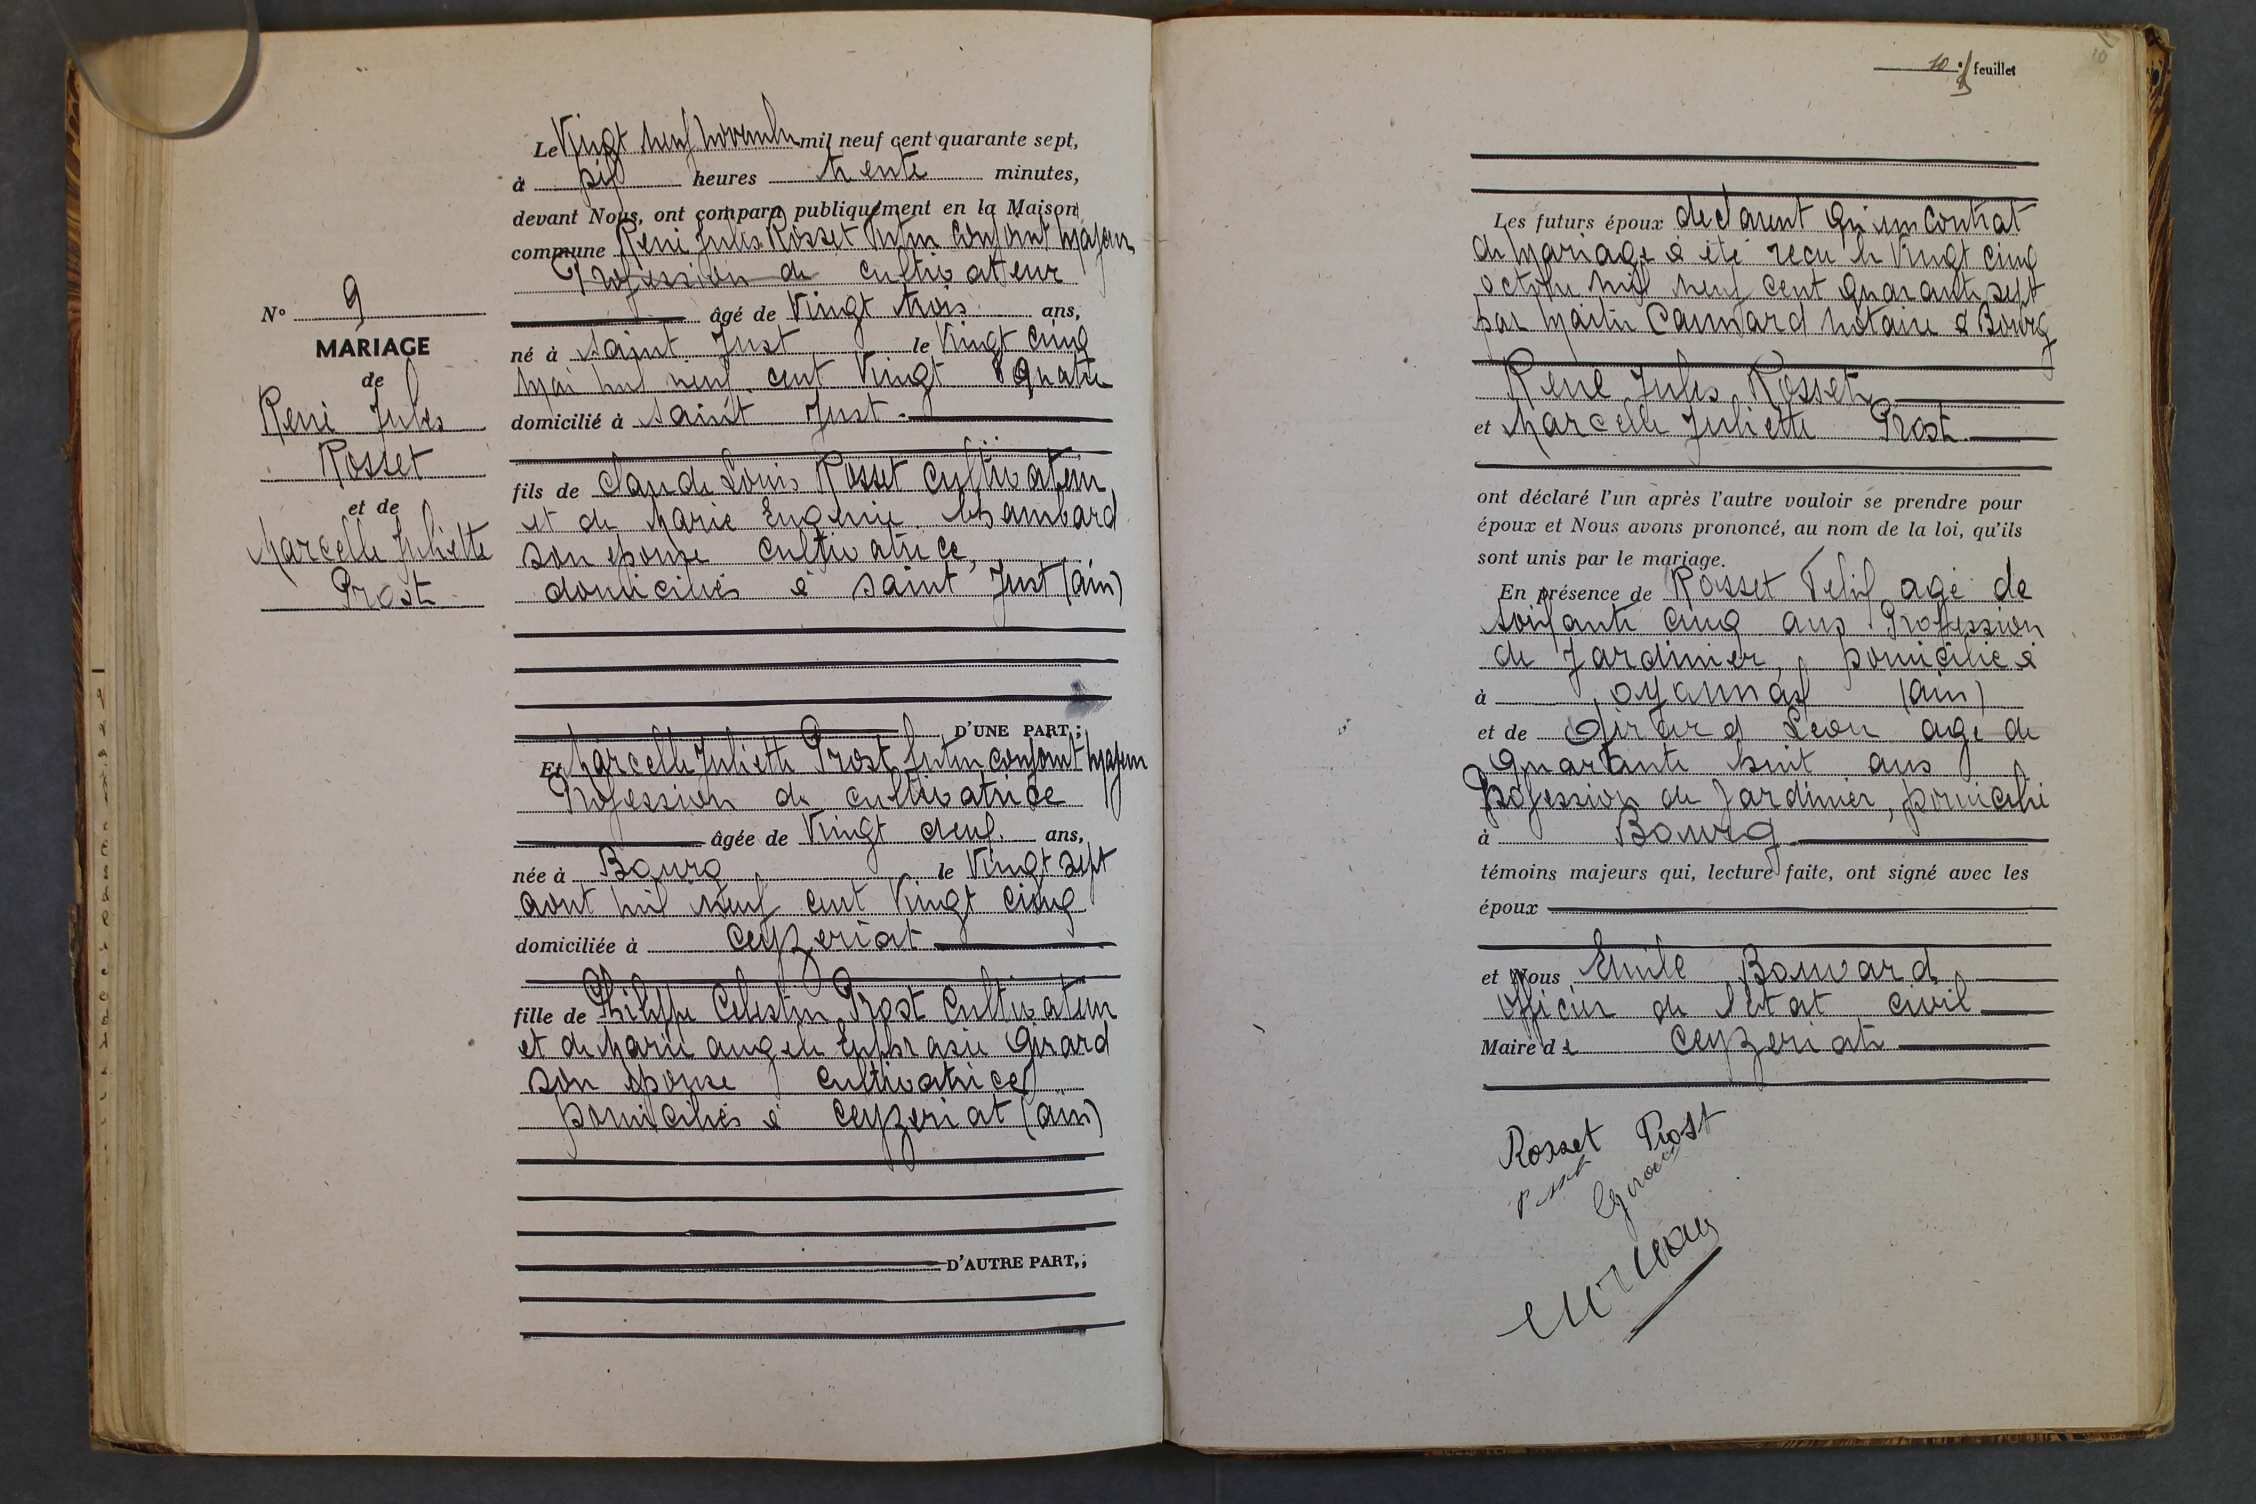 N° 9
MARIAGE
de
René Jules
Rosset
et de
Marcelle Juliette
Prost
Le Vingt neuf novembre mil neuf cent quarante sept,
à dix heures trente minutes,
devant Nous, ont comparu publiquement en la Maison
commune René Jules Rosset futur conjoint majeur
Profession de cultivateur
âgé de Vingt trois ans,
né à Saint Just le Vingt cinq
mai mil neuf cent Vingt quatre
domicilié à Saint Just
fils de Claude Louis Rosset cultivateur
et de Marie Eugénie Chambard
son epouse cultivatrice,
domiciliés à Saint Just (ain)
D'UNE PART ;
Et Marcelle Juliette Prost futur conjoint majeur
Profession de cultivatrice
âgée de Vingt deux ans,
née à Bourg le Vingt sept
aout mil neuf cent Vingt cinq
domiciliée à Ceyzeriat
fille de Philippe Celestin Prost Cultivateur
et de Marie angele Euphrasie Girard
son epouse cultivatrice
domiciliés à Ceyzeriat (ain)
D'AUTRE PART,;
10 feuillet
Les futurs époux declarent qu'un contrat
de mariage à été recu le Vingt cinq
octobre mil neuf cent quarante sept
par Maitre notaire à Bourg
René Jules Rosset
et Marcelle Juliette Prost
ont déclaré l'un après l'autre vouloir se prendre pour
époux et Nous avons prononcé, au nom de la loi, qu'ils
sont unis par le mariage.
En présence de Rosset Felix agé de
soixante cinq ans Profession
de Jardinier, domicilié à
à oyannax (ain)
et de Girard Leon agé de
quarante huit ans
Profession de Jardinier, domicilié
à Bourg
témoins majeurs qui, lecture faite, ont signé avec les
époux
et Nous Emile Bouvard
officier de l'état civil
Maire de Ceyzeriat
Rosset Prost